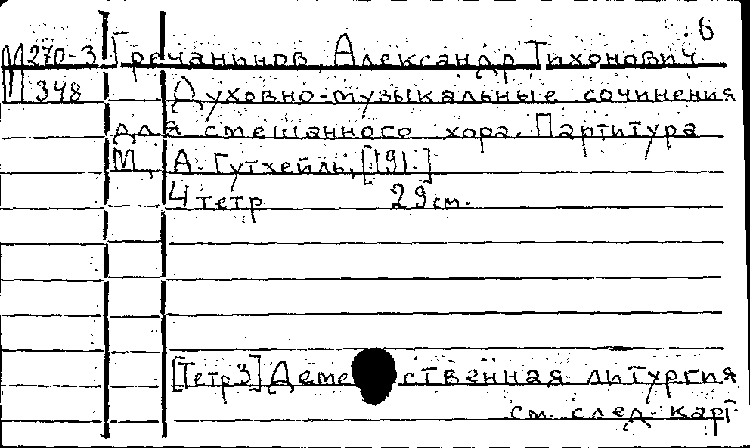 6
М 270-3 Гречанинов Александр Тихонович
348 Духовно-музыкальные сочинения
для смешанного хора. Партитура
М., А. Гутхейль, [191.]
4 тетр 29 см.
[Тетр 3] Деме ственная литургия
см. след. карт